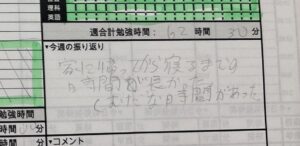 理科
英語
週合計勉強時間： 62 時間 30 分
▼今週の振り返り
家に帰ってから寝るまでの
時間が長かった
(むだな時間があった
勉強時間
時間 分
時間 分
▼コメント